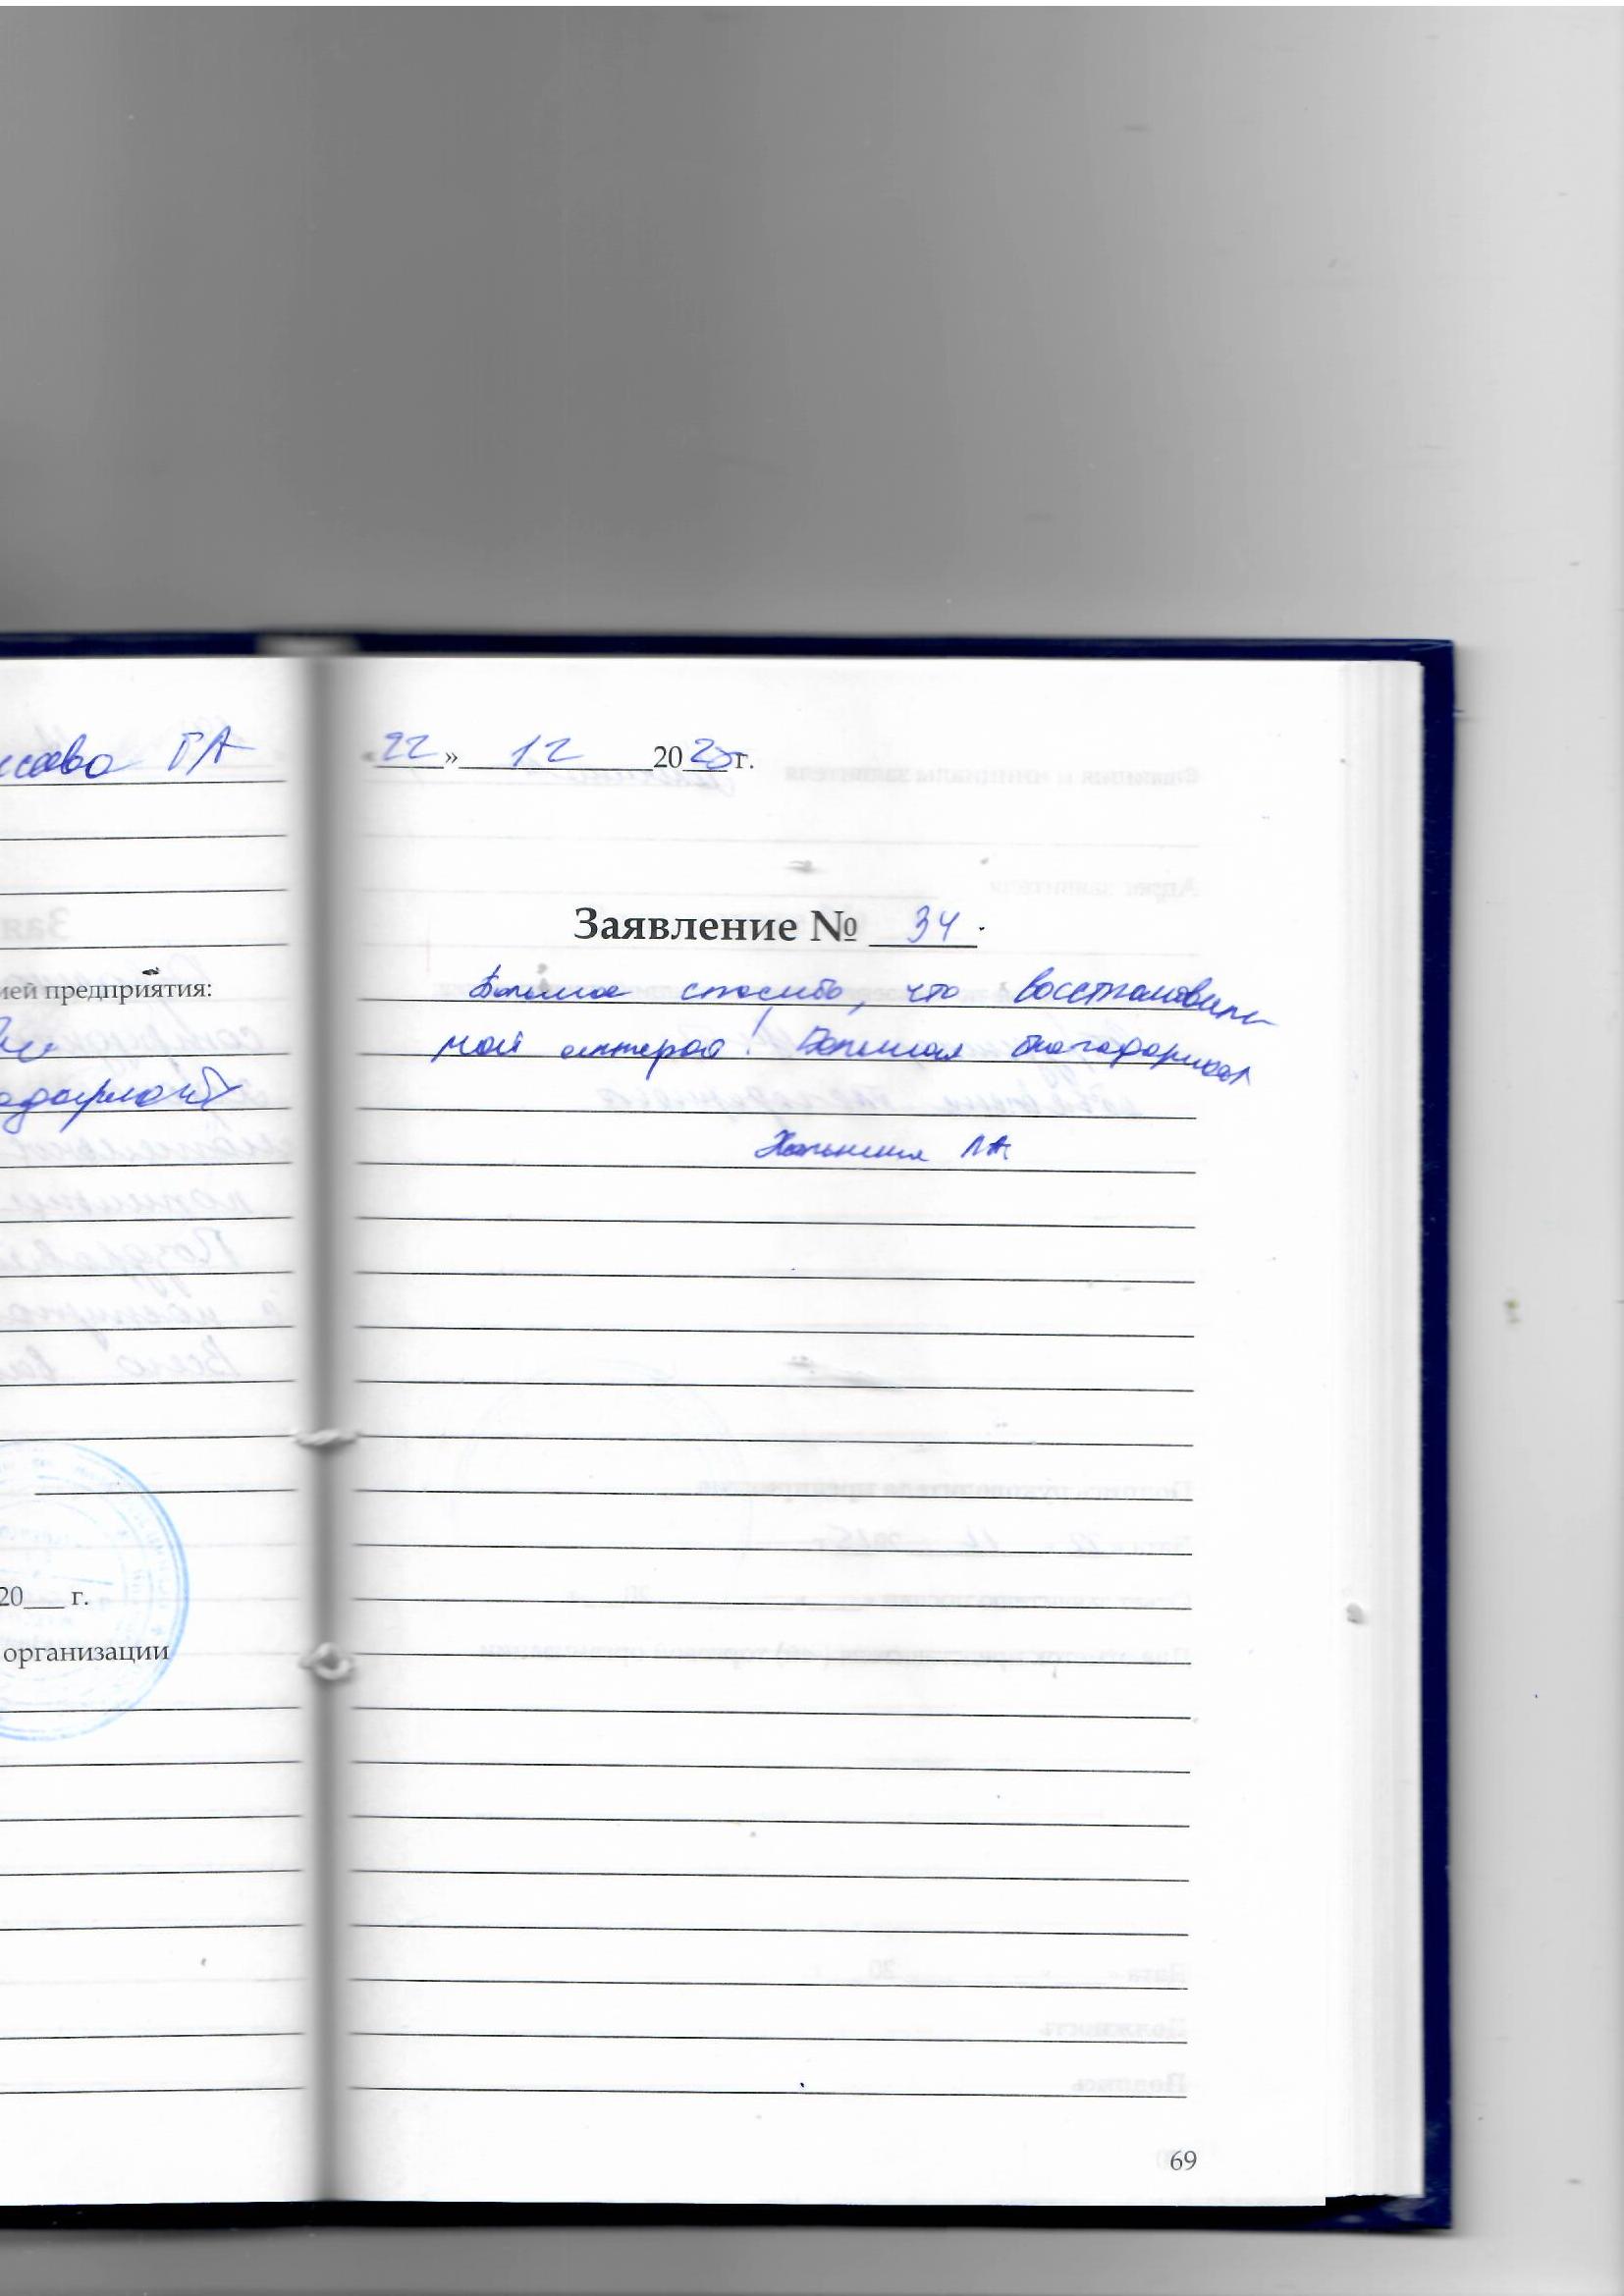 Г А
ией предприятия:
20___ г.
организации
«22» 12 2025 г.
Заявление № 34
Большое спасибо, что восстановили
мой аппарат! Большая благодарность
Л А
69